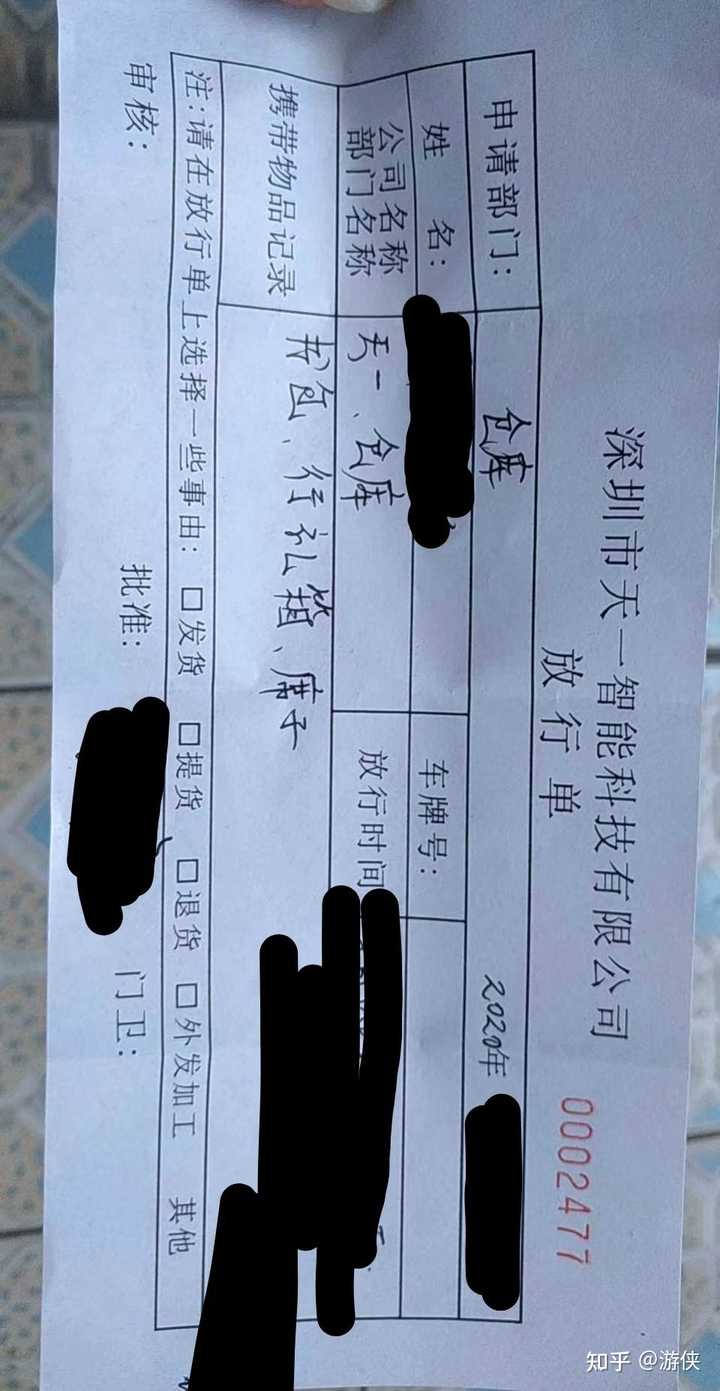 深圳市天一智能科技有限公司
放行单
0002477
申请部门： 仓库 2020年
姓 名： 车牌号：
公司名称
部门名称 天一、仓库 放行时间
携带物品记录 书包、行礼箱、席子
注：请在放行单上选择一些事由：□发货 □提货 □退货 □外发加工 其他
审核： 批准： 门卫：
知乎 @游侠